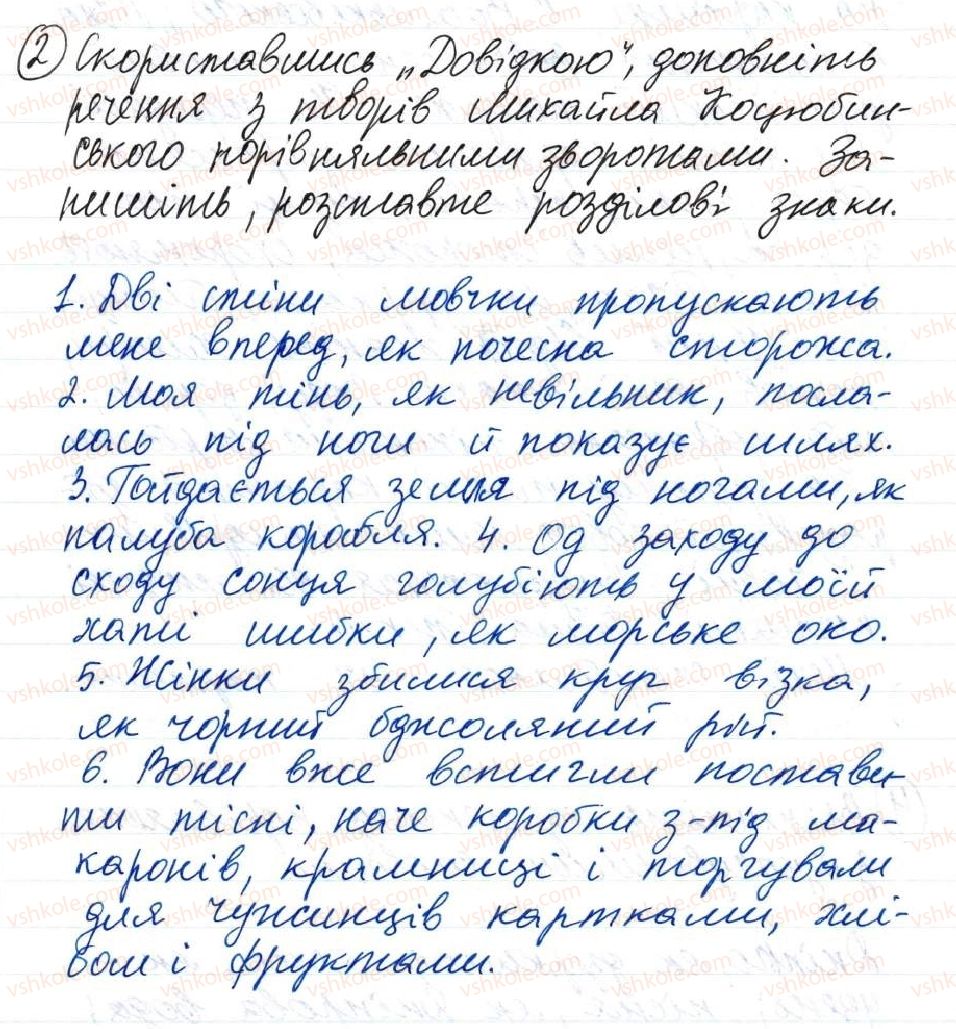 2 Скориставшись „Довідкою", доповніть
речення з творів Михайла Коцюбин-
ського порівняльними зворотами. За-
пишіть, розставте розділові знаки.
1. Дві стіни мовчки пропускають
мене вперед, як почесна сторожа.
2. Моя тінь, як невільник, посла-
лась під ноги й показує шлях.
3. Гойдається земля під ногами, як
палуба корабля. 4. Од заходу до
сходу сонця голубіють у моїй
хаті шибки, як морське око.
5. Жінки збилися круг візка,
як чорний бджоляний рій.
6. Вони вже встигли постави-
ти тісні, наче коробки з-під ма-
каронів, крамниці і торгували
для чужинців картками, хлі-
бом і фруктами.